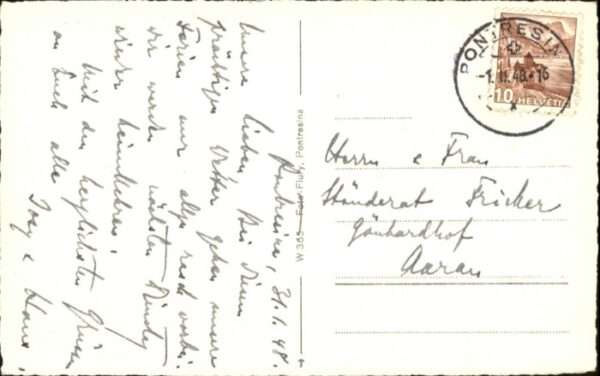 Pontresina, 31.1.48.
Unsere Lieben. Bei diesem
prächtigen Wetter gehen unsere
Ferien nur allzu rasch vorbei.
Wir werden nächsten Dienstag
wieder heimkehren.
Mit den herzlichsten Grüssen
an Euch alle
Tony & Hans.
W 355 Foto Flury, Pontresina
PONTRESINA
-1.II.48.-16
10 HELVETIA
Herrn & Frau
Ständerat Fricker
Gönhardhof
Aarau